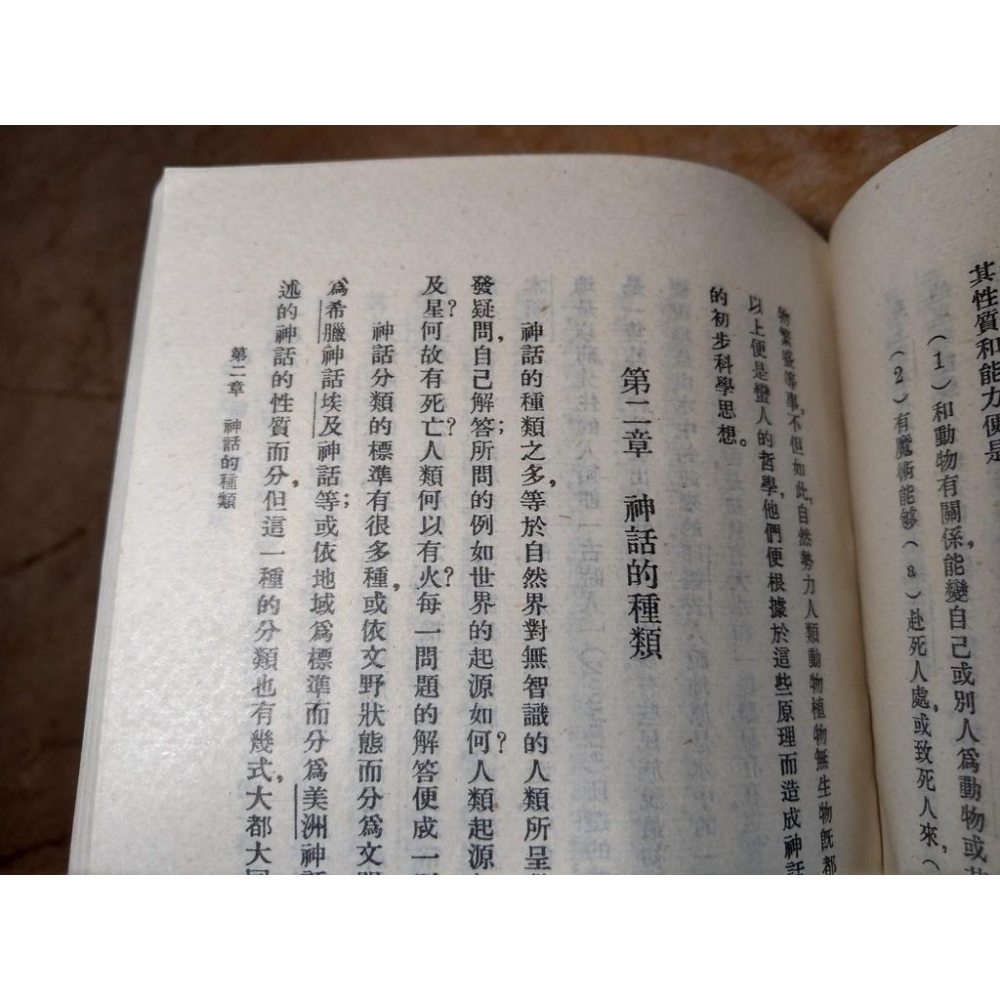 其性質和能力便是
（1）和動物有關係，能變自己或別人為動物或
（2）有魔術能够（a）赴死人處，或致死人來，（
物繁盛等事。不但如此，自然勢力人類動物植物無生物既都
以上便是蠻人的哲學，他們便根據於這些原理而造成神話
的初步科學思想。
第二章　神話的種類
神話的種類之多，等於自然界對無智識的人類所呈
發疑問，自己解答；所問的例如世界的起源如何？人類起源
及星？何故有死亡？人類何以有火？每一問題的解答便成一
神話分類的標準有很多種，或依文野狀態而分為文明
為希臘神話埃及神話等；或依地域為標準而分為美洲神話
述的神話的性質而分，但這一種的分類也有幾式，大都大同
第二章　神話的種類